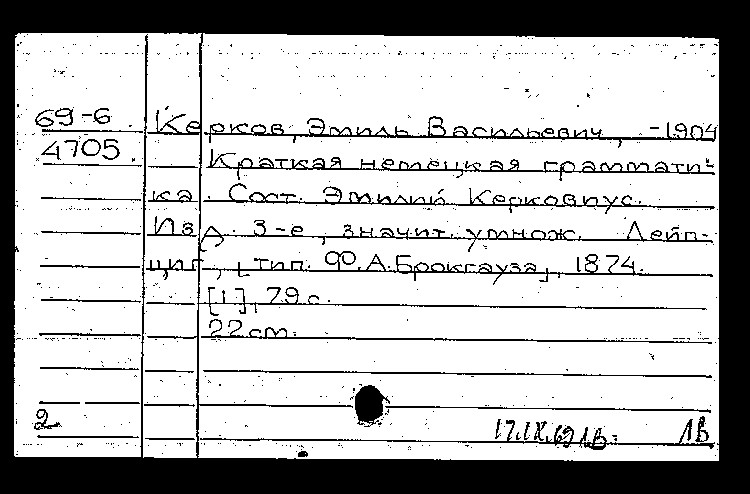 69-6 Керков, Эмиль Васильевич, -1904
4705. Краткая немецкая граммати-
ка. Сост. Эмилий Керковиус.
Изд. 3-е, значит. умнож. Лейп-
циг, [тип. Ф.А. Брокгауза], 1874.
[1], 79 с.
22 cm.
2 17.IX.69 ЛВ. ЛВ